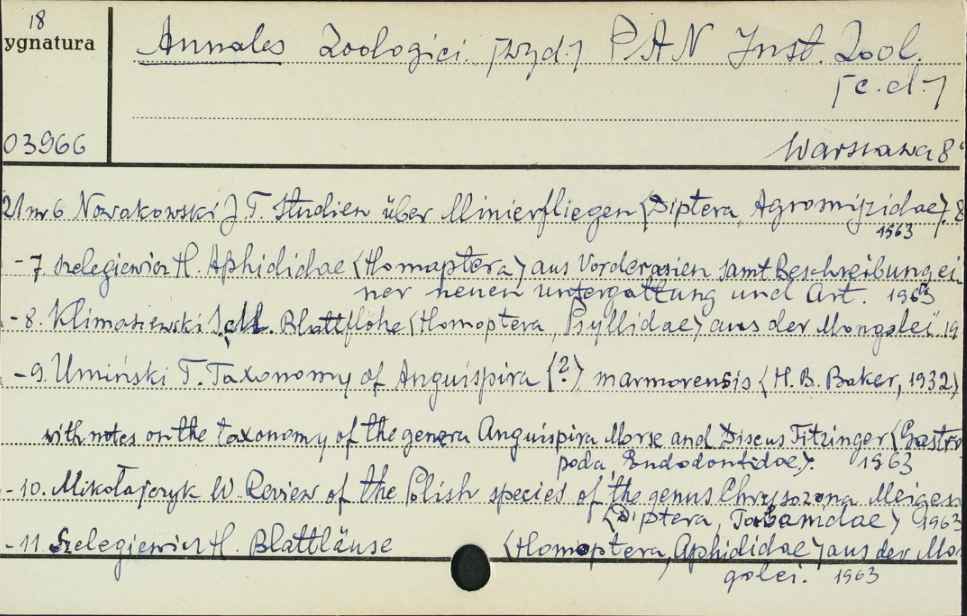 18
ygnatura
Annales Zoologici. [wyd.] PAN Inst. Zool.
[c.d.]
03966
Warszawa 8°
21 nr 6 Nowakowski J T. Studien über Minierfliegen (Diptera, Agromyzidae). 8
1963
-7 Szelegiewicz H. Aphididae (Homaptera) aus Vorderasien samt Beschreibung ei
ner neuen untergattung und Art. 1963
-8. Klimaszewski Blattflöhe (Homoptera, Psyllidae) aus der Mongolei. 19
-9. Umiński T. Taxonomy of Anguispira (?) marmorensis (H. B. Baker, 1932)
with notes on the taxonomy of the genera Anguispira Morse and Discus Fitzinger (Gastro
poda, Endodontidae). 1963
-10. Mikołajczyk W. Review of the Polish species of the genus Chrysozona Meigen
(Diptera, Tabanidae) 1963
-11 Szelegiewicz H. Blattläuse (Homoptera, Aphididae) aus der Mo
golei. 1963